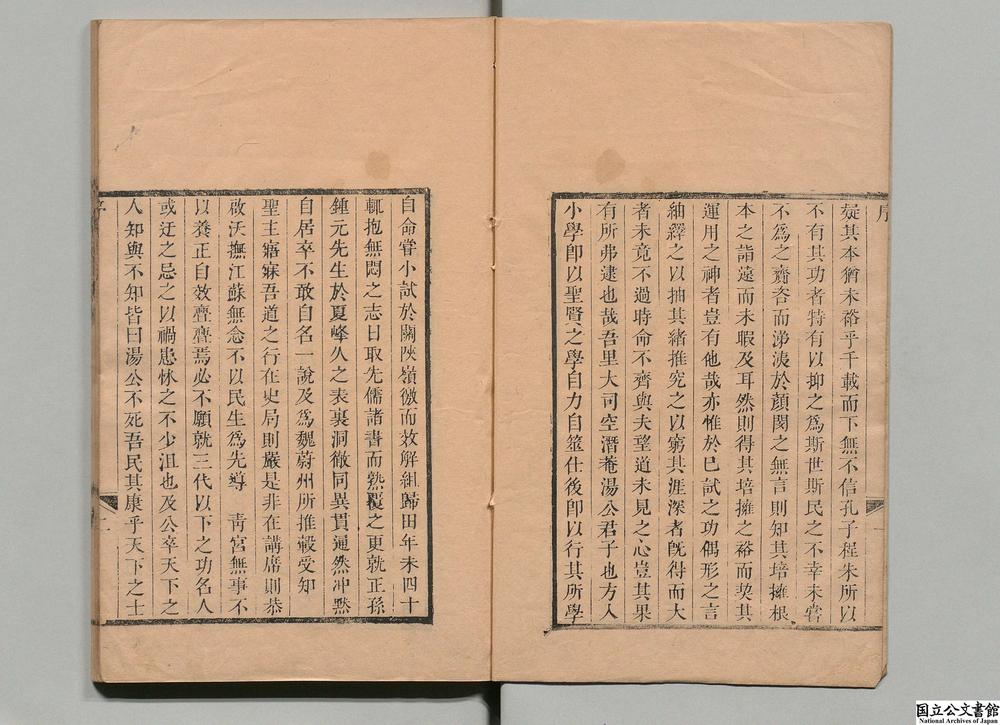 序
疑其本猶未裕乎千載而下無不信孔子程朱所以
不有其功者特有以抑之爲斯世斯民之不幸未嘗
不爲之齎咨而涕洟於顏閔之無言則知其培擁根
本之詣遠而未暇及耳然則得其培擁之裕而契其
運用之神者豈有他哉亦惟於已試之功偶形之言
紬繹之以抽其緒推究之以窮其涯深者旣得而大
者未竟不過時命不齊與夫望道未見之心豈其果
有所弗逮也哉吾里大司空潛菴湯公君子也方入
小學卽以聖賢之學自力自筮仕後卽以行其所學
自命嘗小試於關陝嶺徼而效解組歸田年未四十
輒抱無悶之志日取先儒諸書而熟覆之更就正孫
鍾元先生於夏峰久之表裏洞徹同異貫通然冲黙
自居卒不敢自名一說及爲魏蔚州所推轂受知
聖主寤寐吾道之行在史局則嚴是非在講席則恭
啟沃撫江蘇無念不以民生爲先導 青宮無事不
以養正自效齊齊焉必不願就三代以下之功名人
或迂之忌之以禍患怵之不少沮也及公卒天下之
人知與不知皆曰湯公不死吾民其康乎天下之士
二
国立公文書館
National Archives of Japan